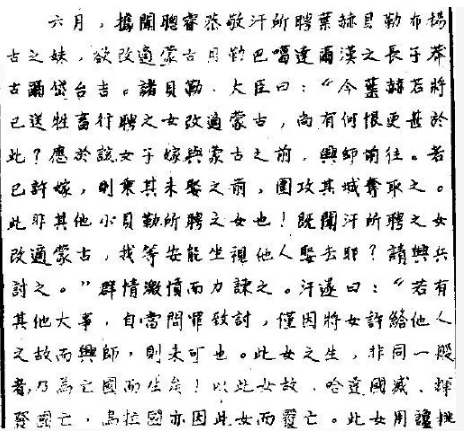 六月,據聞聰睿恭敬汗所聘葉赫貝勒布揚
古之妹,欲改適蒙古貝勒巴噶達爾漢之長子莽
古爾岱台吉。諸貝勒、大臣曰:“今葉赫若將
已送牲畜行聘之女改適蒙古,尚有何恨更甚於
此?應於該女子嫁與蒙古之前,興師前往。若
已許嫁,則乘其未娶之前,圍攻其城奪取之。
此非其他小貝勒所聘之女也!既聞汗所聘之女
改適蒙古,我等安能坐視他人娶去耶?請興兵
討之。”群情激憤而力諫之。汗遂曰:“若有
其他大事,自當問罪致討,僅因將女許給他人
之故而興師,則未可也。此女之生,非同一般
者,乃為亡國而生矣!以此女故,哈達國滅,輝
發國亡,烏拉國亦因此女而覆亡。此女用讒挑